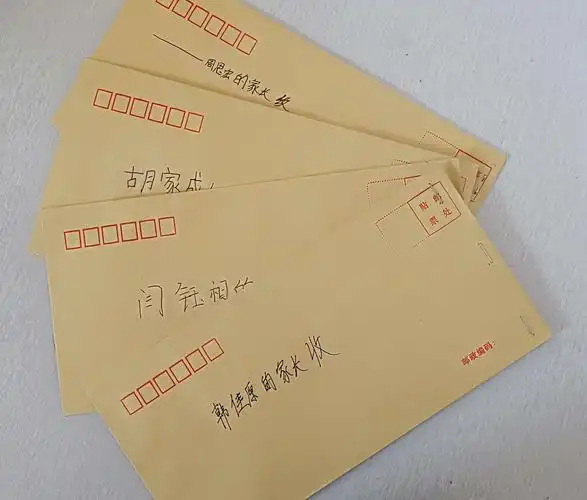 周思宏的家长收
胡家成
闫钰相
贴邮
票处
韩佳原的家长收
邮政编码：